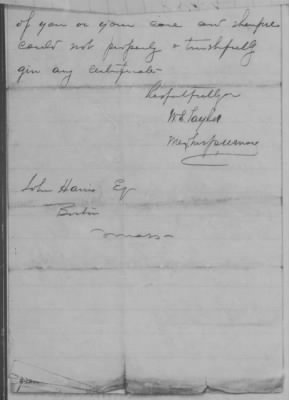 of you or your case and therefore
could not properly & truthfully
give any certificate
Respectfully
W. S. Taylor
John Harris Esq
Boston
Mass